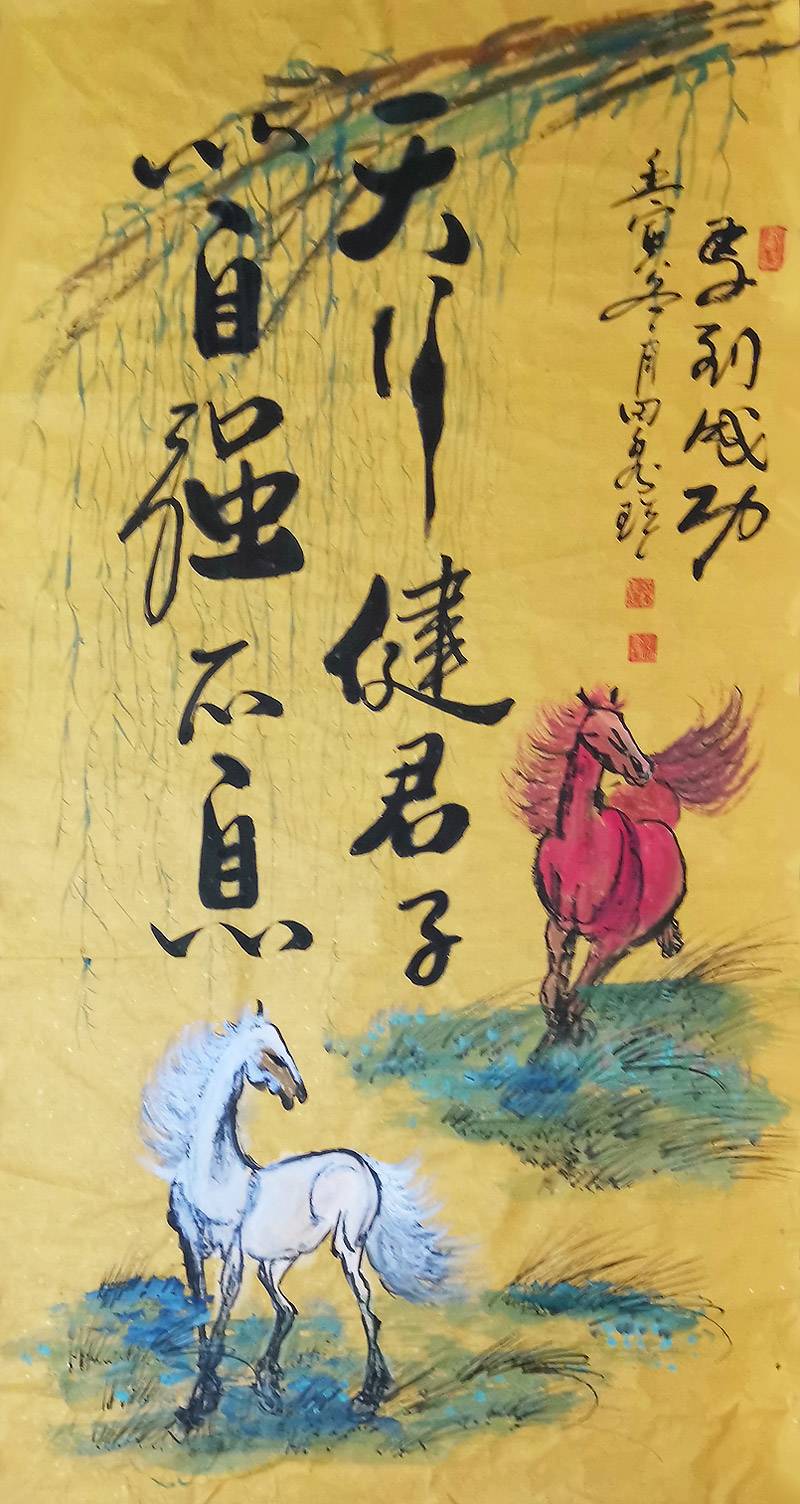 马到成功
壬寅冬月田
天行健君子
以自强不息